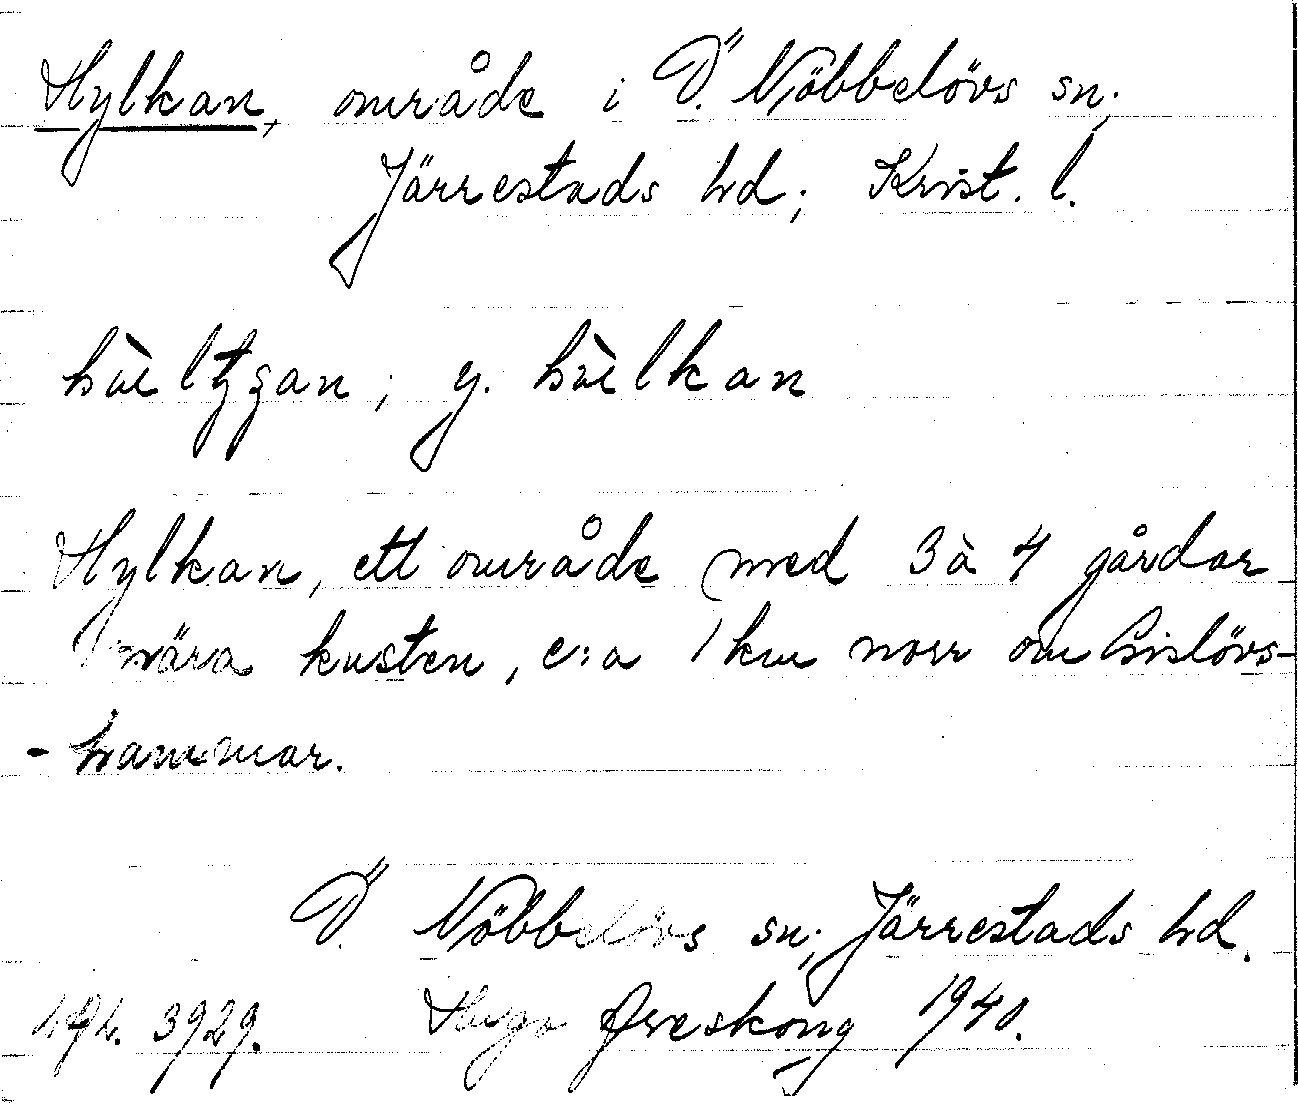 Hylkan, område i Ö. Nöbbelövs sn;
Järrestads hd; Krist. l.
y.
Hylkan, ett område med 3 à 4 gårdar
nära kusten, c:a 1 km norr om Gislövs-
-hammar.
Ö. Nöbbelövs sn; Järrestads hd.
3929. Hugo Areskoug 1940.